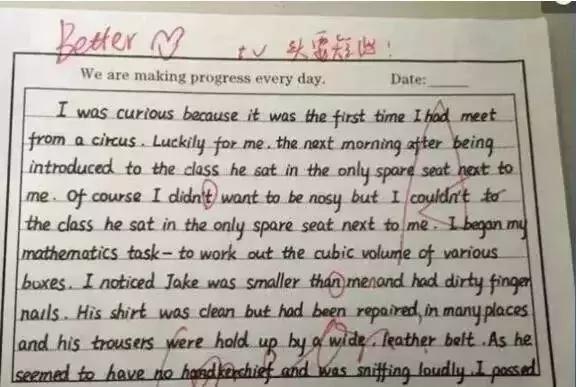 Better
We are making progress every day. Date:
I was curious because it was the first time I had meet
from a circus. Luckily for me. the next morning after being
introduced to the class he sat in the only spare seat next to
me. Of course I didn't want to be nosy but I couldn't to
the class he sat in the only spare seat next to me. I began my
mathematics task - to work out the cubic volume of various
boxes. I noticed Jake was smaller than menand had dirty finger
nails. His shirt was clean but had been repaired, in many places
and his trousers were hold up by a wide, leather belt. As he
seemed to have no handkerchief and was sniffing loudly. I passed